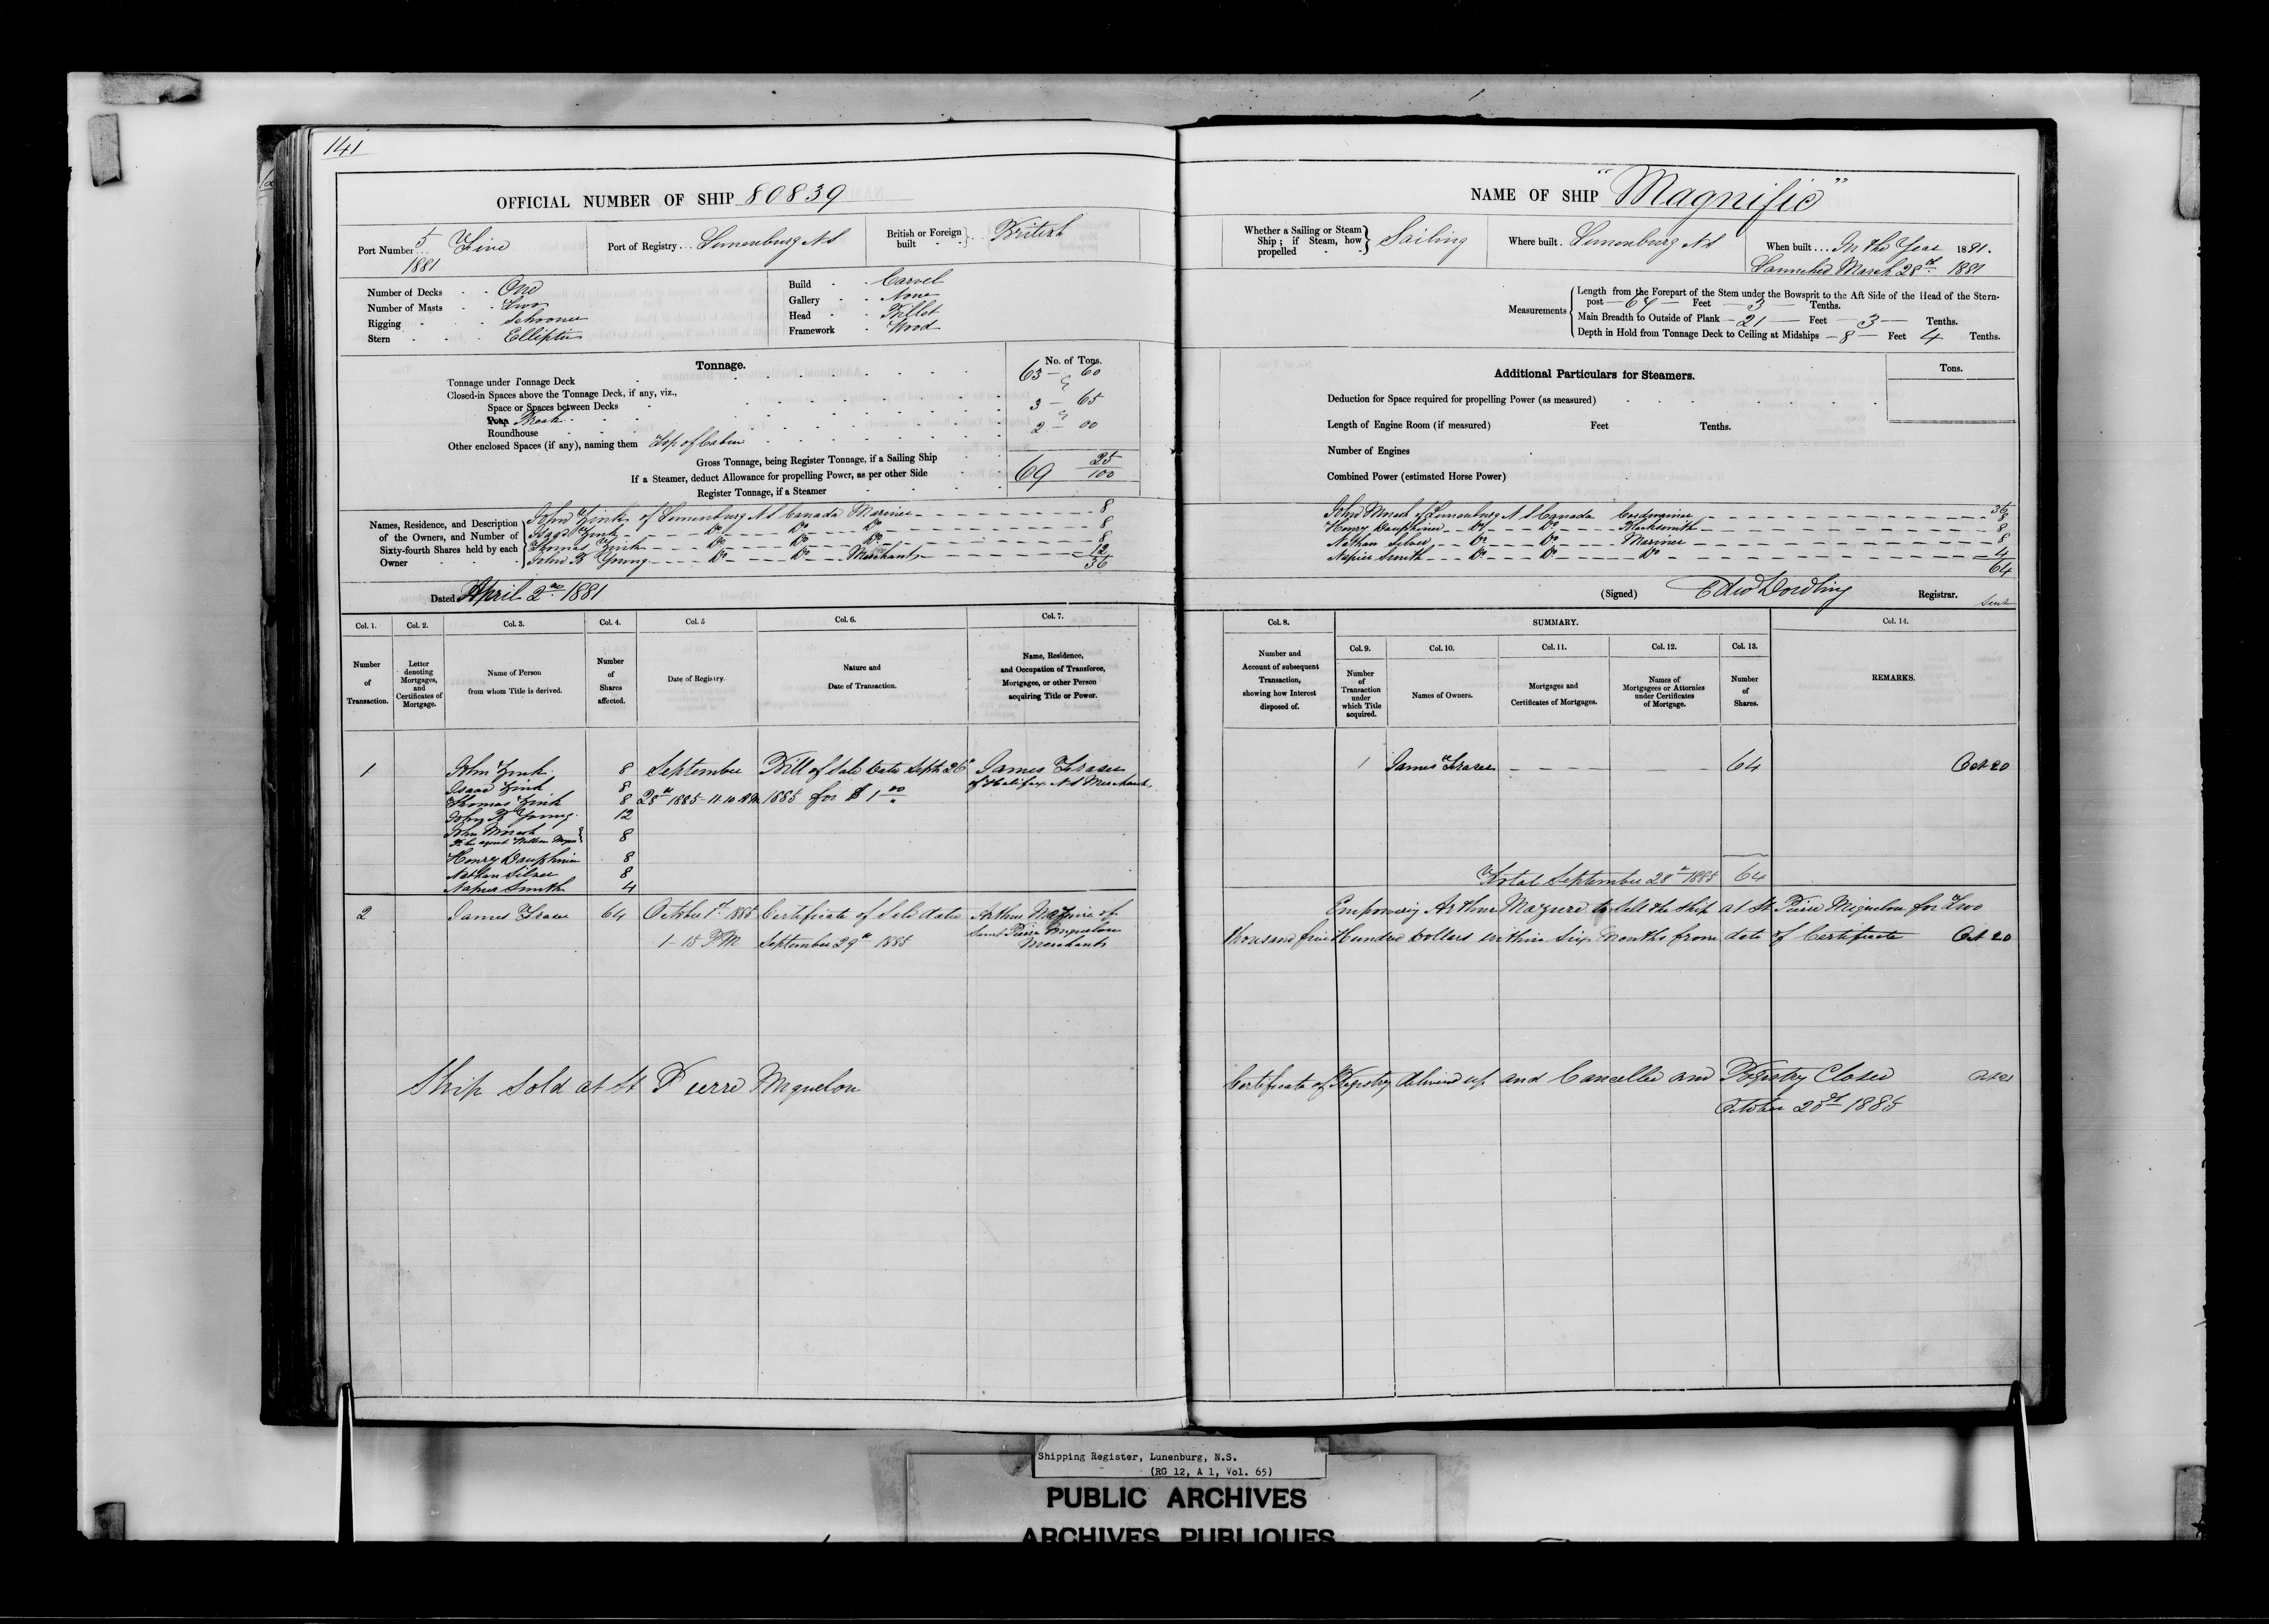 141
OFFICIAL NUMBER OF SHIP 80839
Port Number 5/1881 Five
Port of Registry Lunenburg N S
British or Foreign built British
Number of Decks One
Number of Masts Two
Rigging Schooner
Stern Elliptic
Build Carvel
Gallery None
Head Billet
Framework Wood
Tonnage.
No. of Tons.
Tonnage under Tonnage Deck 63 60
Closed-in Spaces above the Tonnage Deck, if any, viz.,
Space or Spaces between Decks
Poop Break 3 65
Roundhouse
Other enclosed Spaces (if any), naming them Top of Cabin 2 00
Gross Tonnage, being Register Tonnage, if a Sailing Ship 69 25/100
If a Steamer, deduct Allowance for propelling Power, as per other Side
Register Tonnage, if a Steamer
Names, Residence, and Description of the Owners, and Number of Sixty-fourth Shares held by each Owner
John Zink of Lunenburg N S Canada Mariner 8
Isaac Zink Do Do Do 8
Thomas Zink Do Do Do 8
John B Young Do Do Merchant 12
36
Dated April 2nd 1881
Col. 1. Number of Transaction.
Col. 2. Letter denoting Mortgages, and Certificates of Mortgage.
Col. 3. Name of Person from whom Title is derived.
Col. 4. Number of Shares affected.
Col. 5 Date of Registry.
Col. 6. Nature and Date of Transaction.
Col. 7. Name, Residence, and Occupation of Transferee, Mortgagee, or other Person acquiring Title or Power.
1 John Zink 8 September Bill of Sale date Septr 26th James Fraser
Isaac Zink 8 of Halifax N S Merchant
Thomas Zink 8 28th 1885 11.10 AM 1885 for $1.00
John B Young 12
John Morash 8
by his agent William
Henry Dauphinee 8
Nathan Silver 8
Napier Smith 4
2 James Fraser 64 October 1st 1885 Certificate of Sale date Arthur Mazure of
1-15 PM September 29th 1885 Saint Pierre Miquelon
Merchant
Ship Sold at St Pierre Miquelon
NAME OF SHIP "Magnific"
Whether a Sailing or Steam Ship; if Steam, how propelled Sailing
Where built Lunenburg N S
When built In the Year 1881.
Launched March 28th 1881
Measurements
Length from the Forepart of the Stem under the Bowsprit to the Aft Side of the Head of the Stern-
post Feet 3 Tenths.
Main Breadth to Outside of Plank 21 Feet 3 Tenths.
Depth in Hold from Tonnage Deck to Ceiling at Midships 8 Feet 4 Tenths.
Additional Particulars for Steamers.
Tons.
Deduction for Space required for propelling Power (as measured)
Length of Engine Room (if measured) Feet Tenths.
Number of Engines
Combined Power (estimated Horse Power)
36
John Morash of Lunenburg N S Canada Cordwainer 8
Henry Dauphinee Do Do Blacksmith 8
Nathan Silver Do Do Mariner 8
Napier Smith Do Do Do 4
64
(Signed) Edwd Dowling Registrar.
Sent
Col. 8. Number and Account of subsequent Transaction, showing how Interest disposed of.
SUMMARY.
Col. 9. Number of Transaction under which Title acquired.
Col. 10. Names of Owners.
Col. 11. Mortgages and Certificates of Mortgages.
Col. 12. Names of Mortgagees or Attornies under Certificates of Mortgage.
Col. 13. Number of Shares.
Col. 14. REMARKS.
1 James Fraser 64 Oct 20
Total September 28th 1885 64
Empowering Arthur Mazure to Sell the Ship at St Pierre Miquelon for Two
thousand five Hundred Dollars within Six Months from date of Certificate Oct 20
Certificate of Registry delivered up and Cancelled and Registry Closed
October 20th 1885
Shipping Register, Lunenburg, N.S.
(RG 12, A 1, Vol. 65)
PUBLIC ARCHIVES
ARCHIVES PUBLIQUES